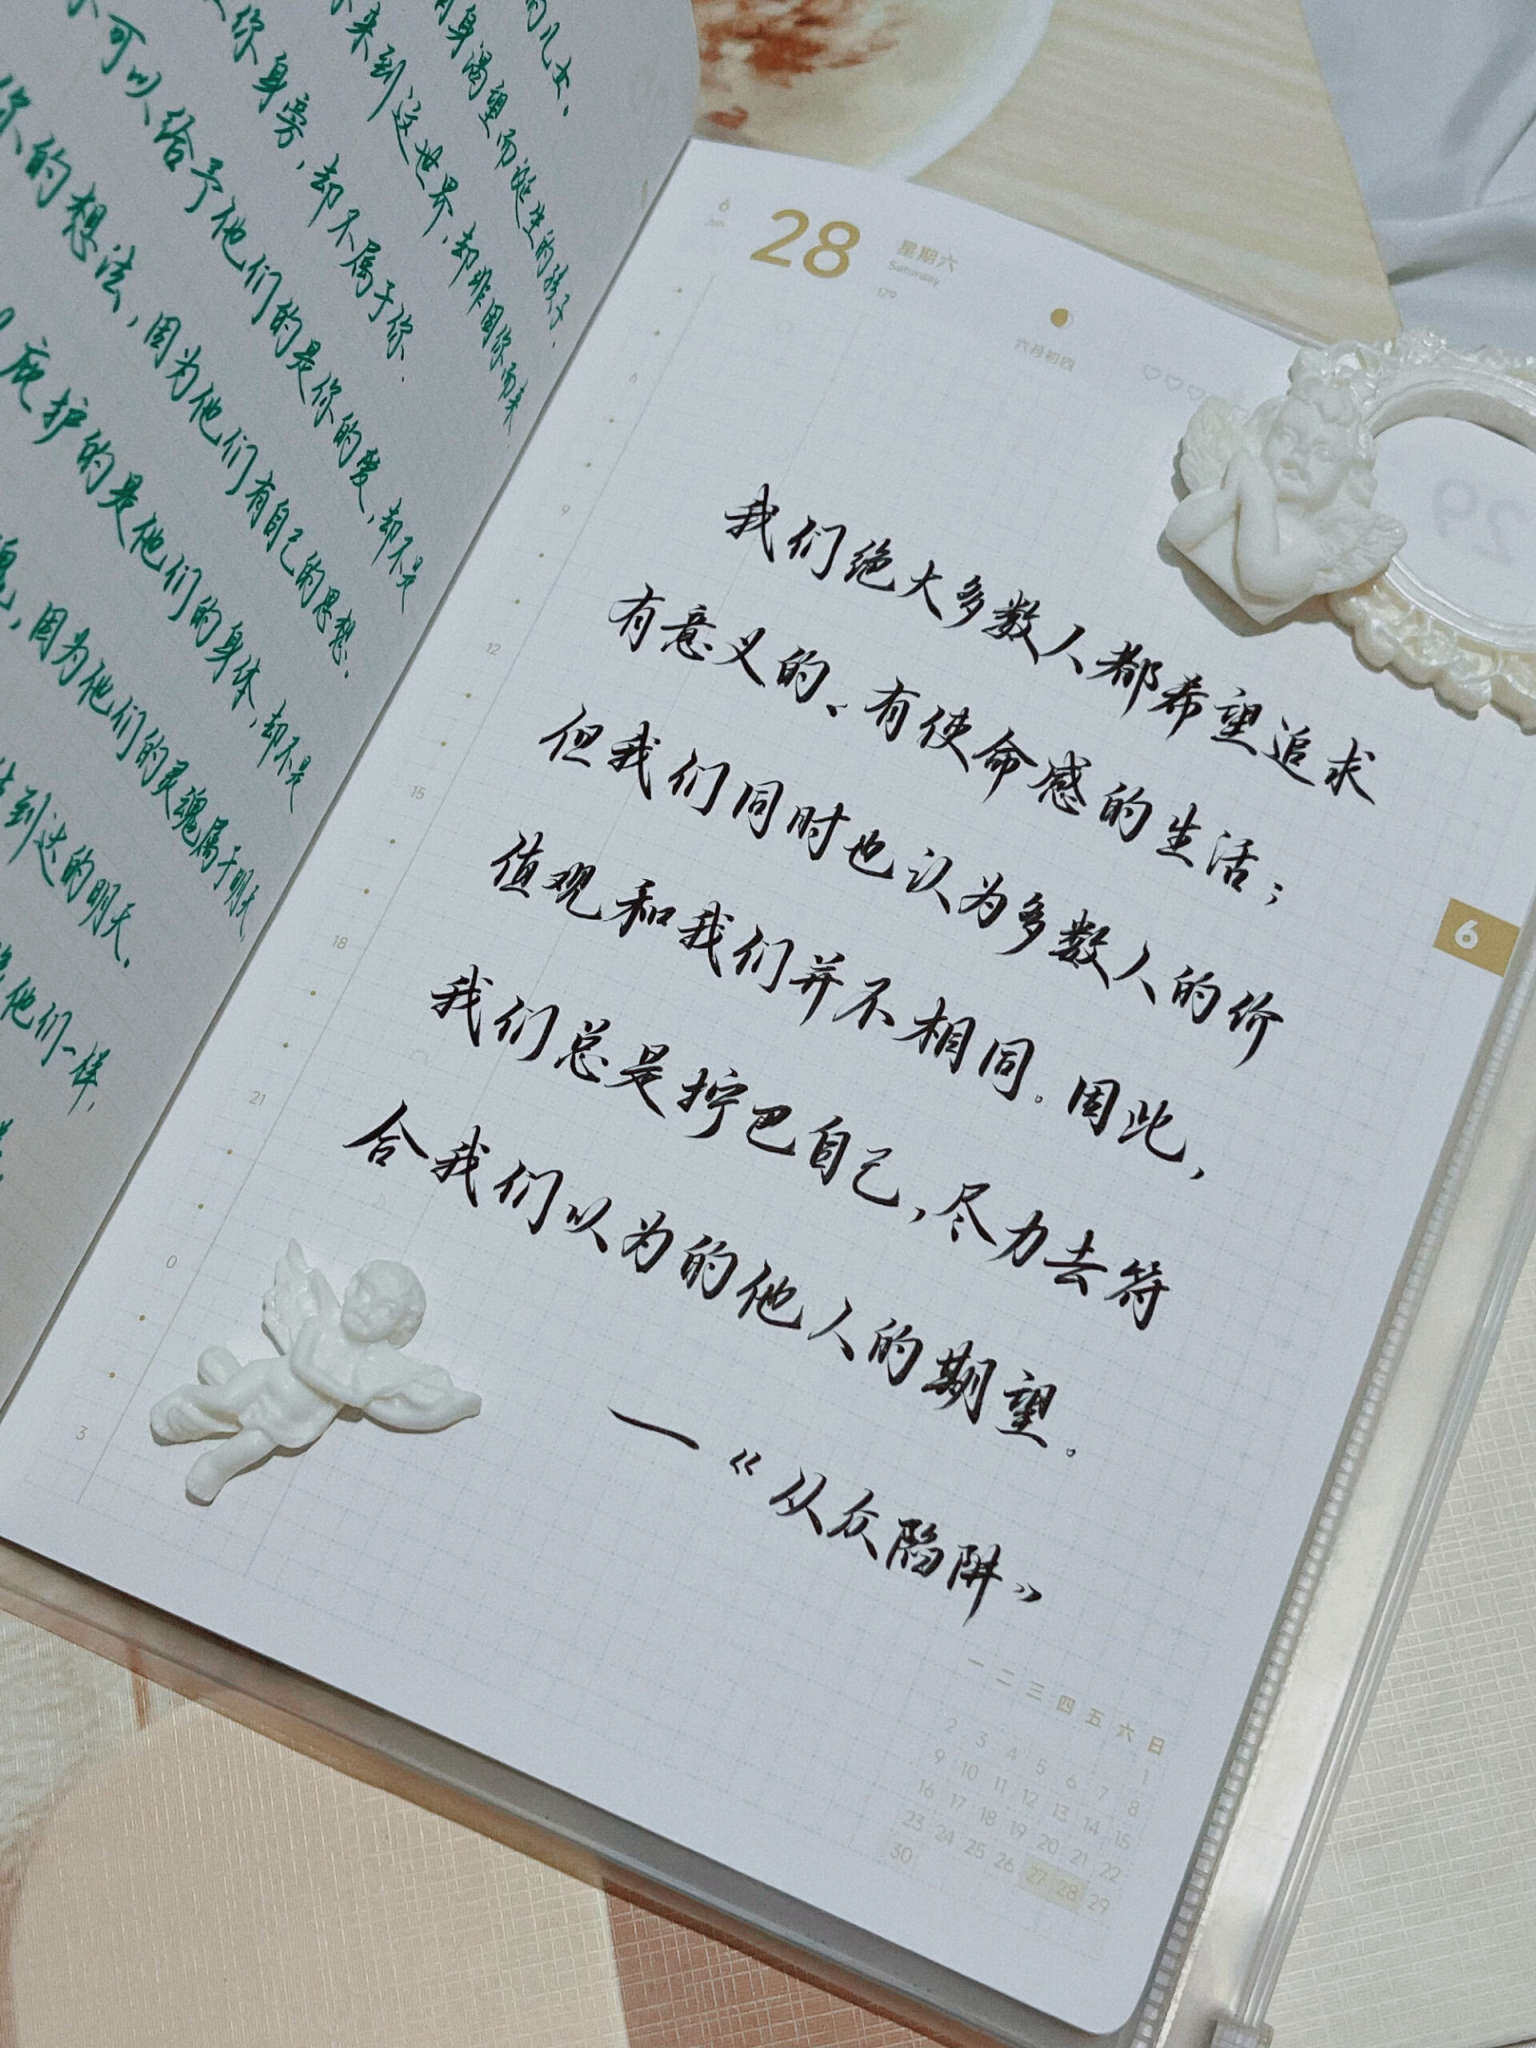 的儿女、
身渴望而诞生的孩子.
来到这世界,却非因你而来
你身旁,却不属于你.
可以给予他们的是你的爱,却不是
你的想法,因为他们有自己的思想.
庇护的是他们的身体,却不是
魂,因为他们的灵魂属于明天,
到达的明天、
他们一样,
6
28
星期六
Saturday
179
六月初四
6
9
12
15
18
21
0
3
我们绝大多数人都希望追求
有意义的、有使命感的生活;
但我们同时也认为多数人的价
值观和我们并不相同。因此,
我们总是拧巴自己,尽力去符
合我们以为的他人的期望。
—《从众陷阱》
6
29
一 二 三 四 五 六 日
1
2 3 4 5 6 7 8
9 10 11 12 13 14 15
16 17 18 19 20 21 22
23 24 25 26 27 28 29
30